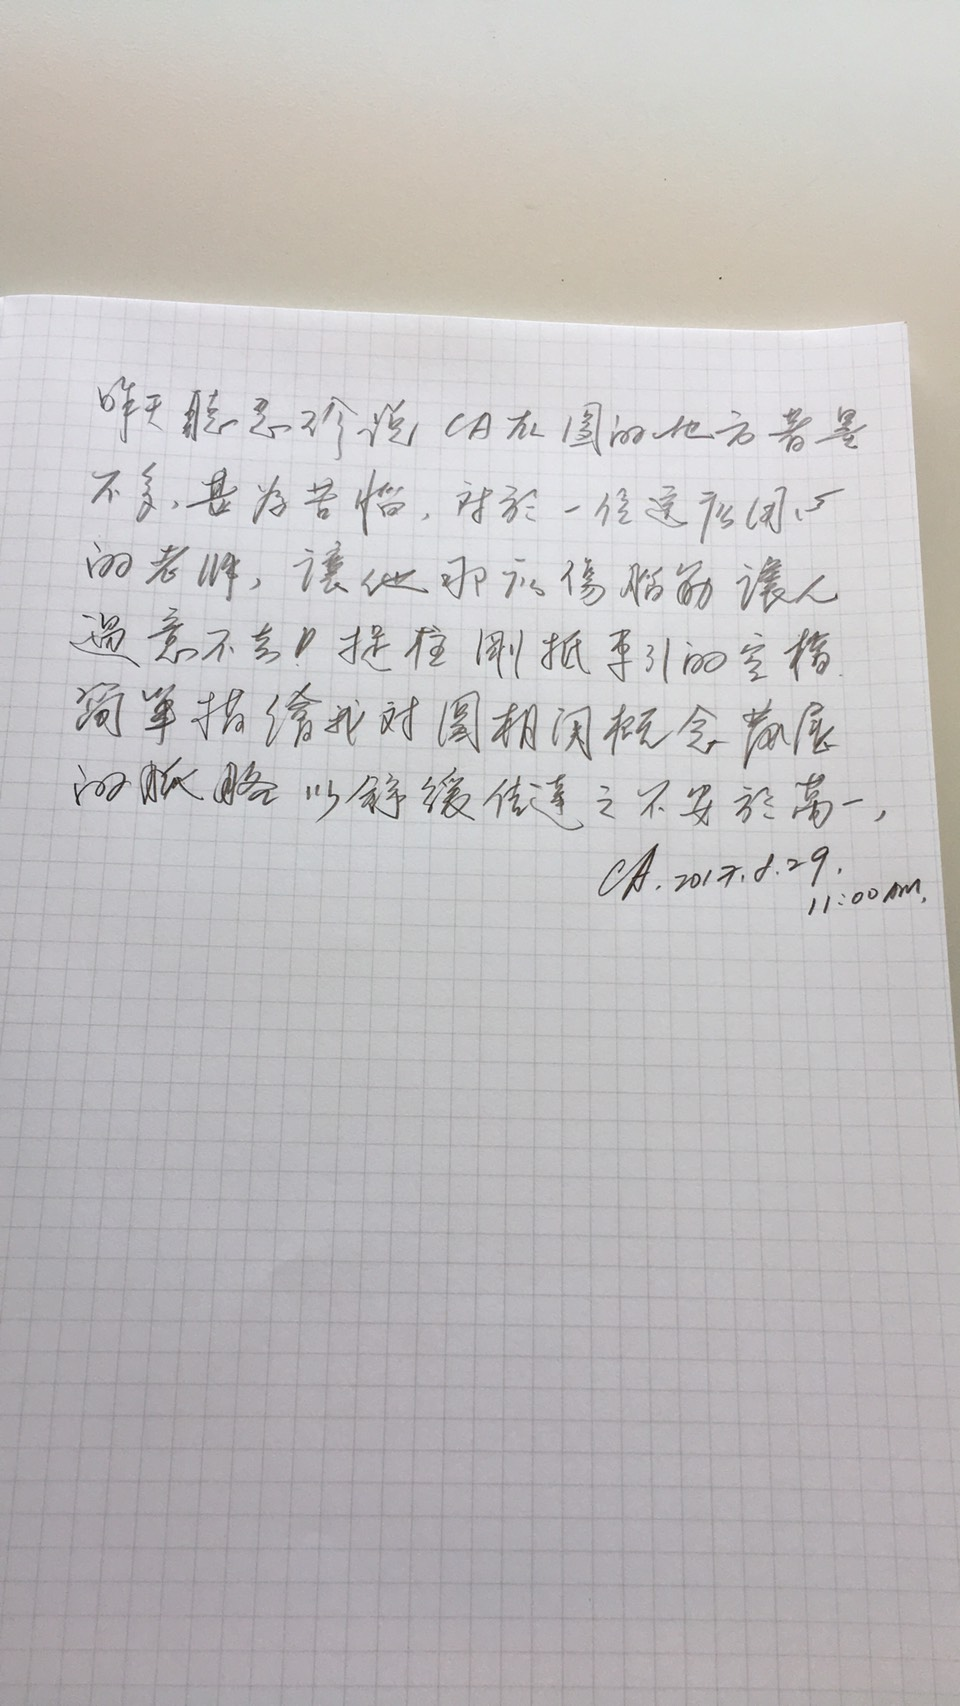 昨天聽忍珍說 CA在圖的地方著墨
不多,甚為苦惱,對於一位這么用心
的老師,讓他那么傷腦筋讓人
過意不去!捉住剛抵車引的空檔
簡單描繪我對圖相関概念發展
的脈略以舒緩佳達之不安於萬一,
CA.2017.8.29.
11:00AM.